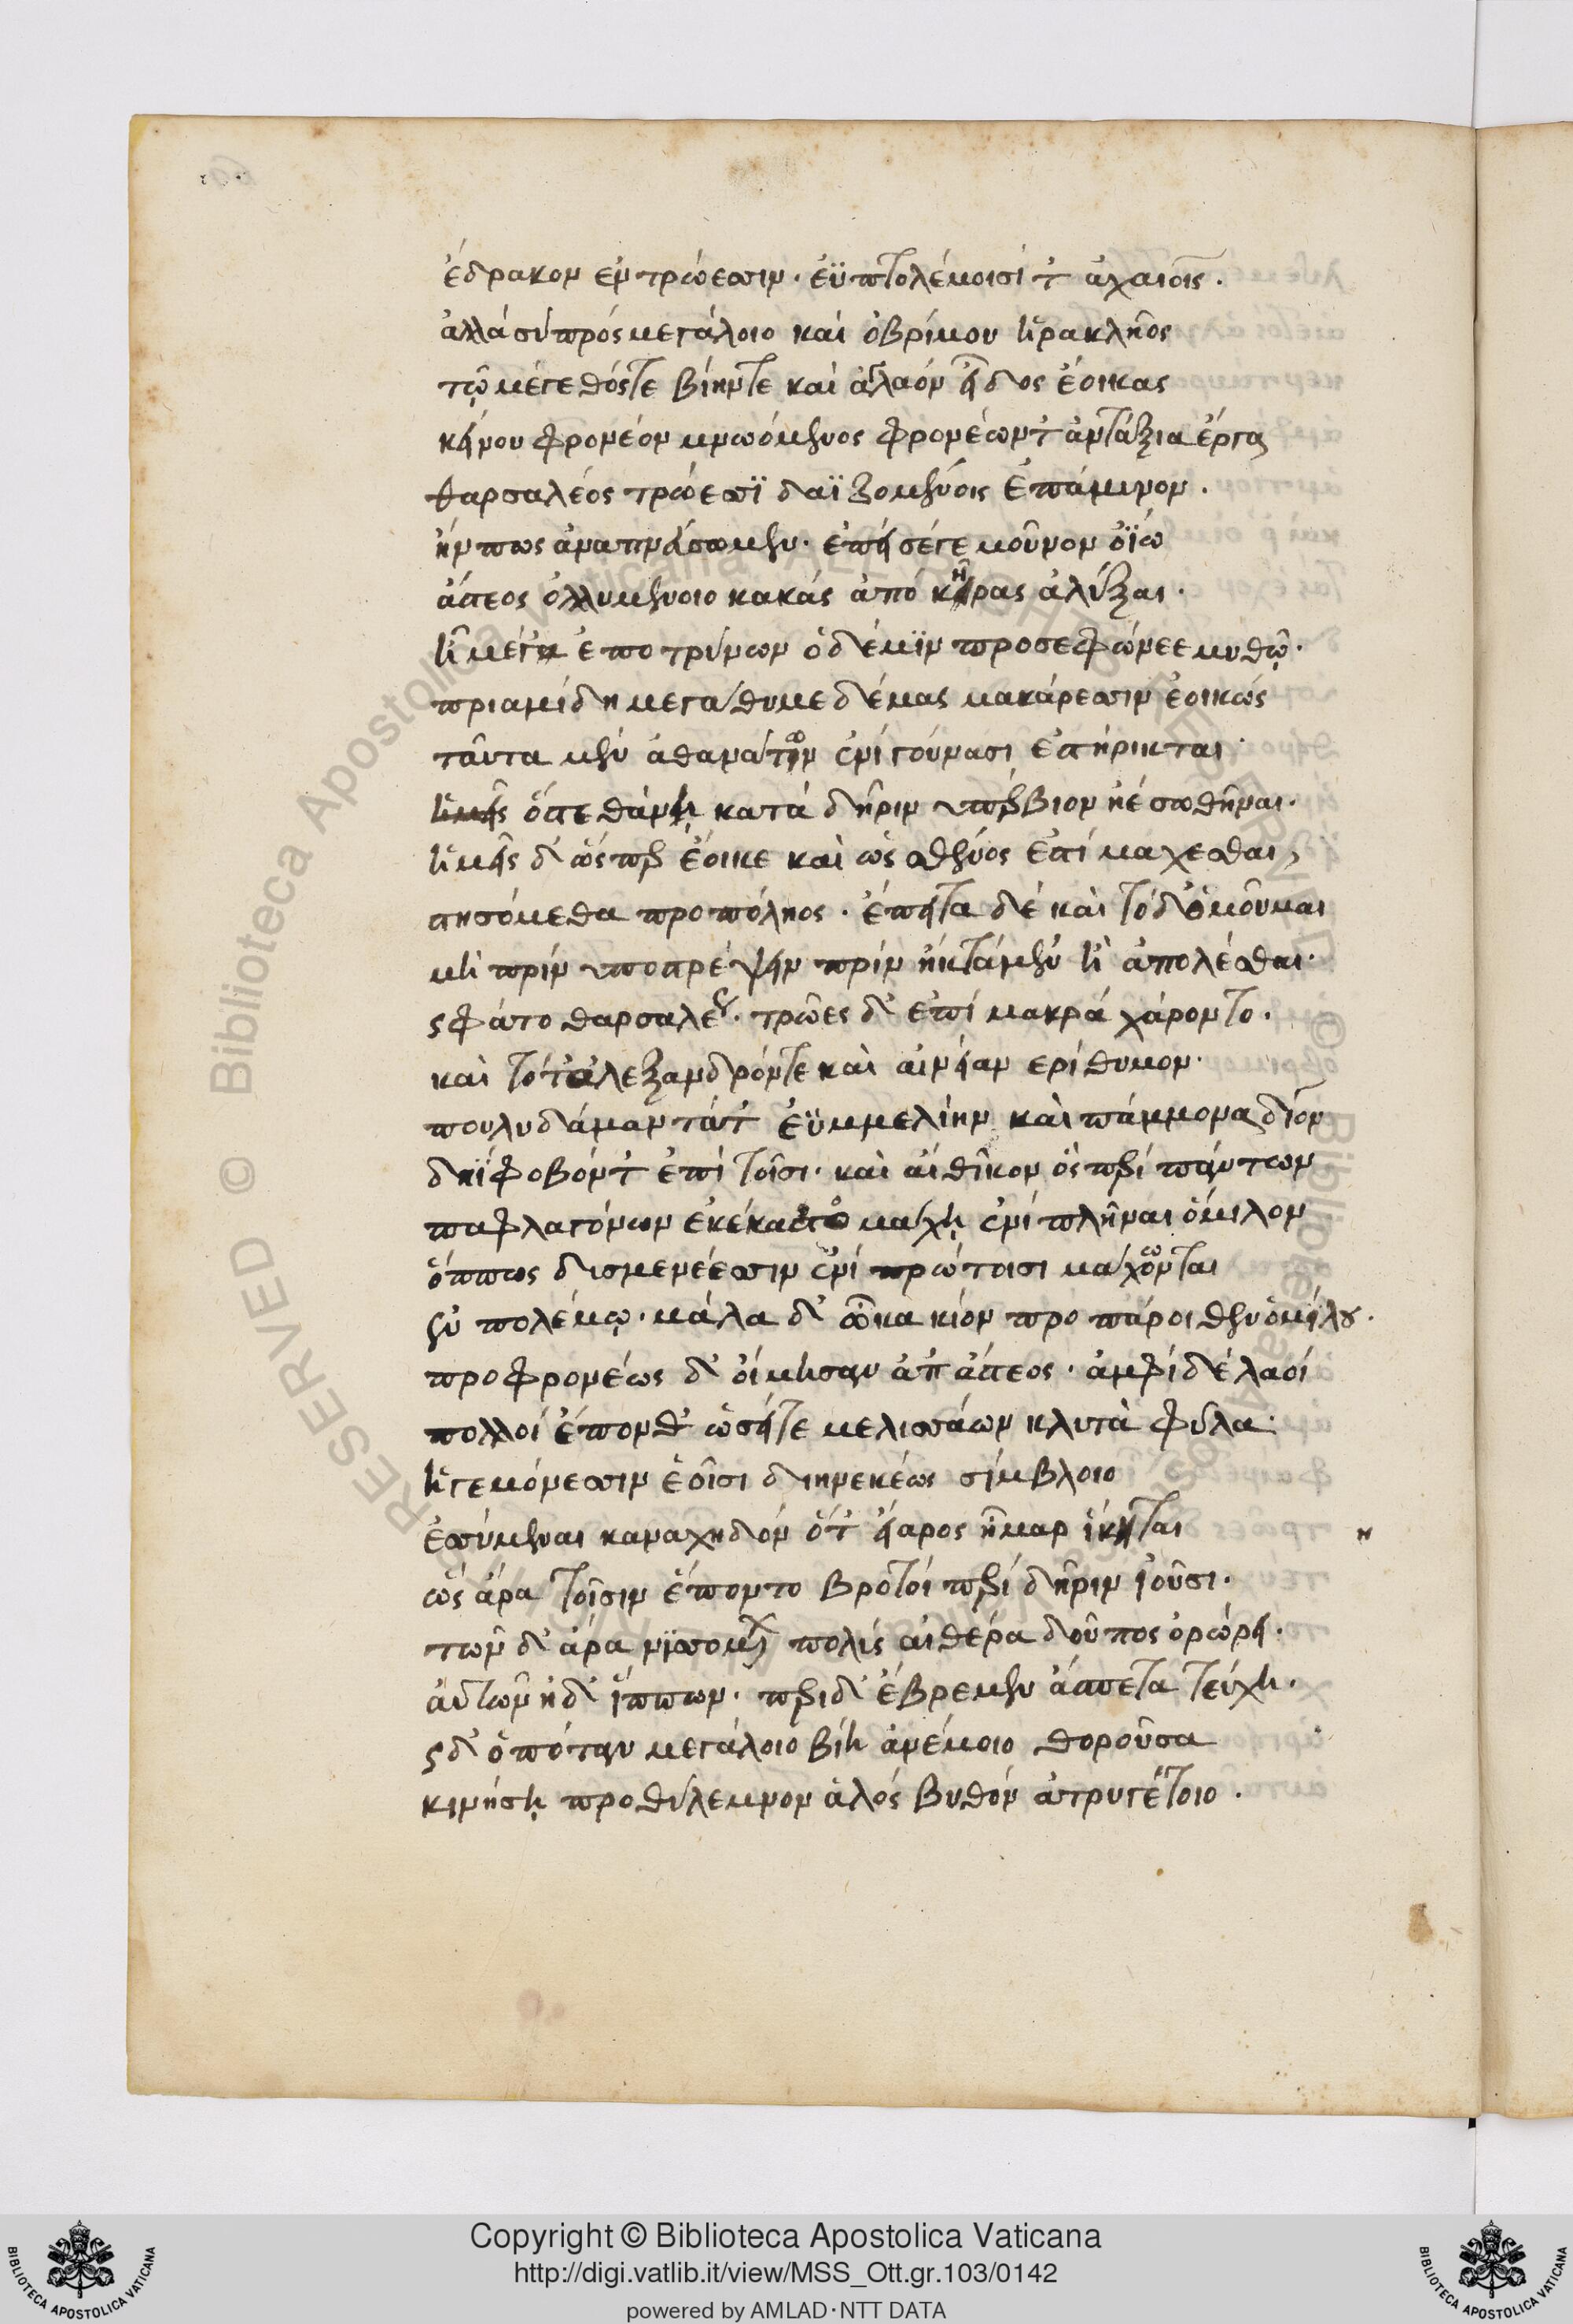 ἔδρακον ἐν τρώεσσιν· ἐϋπτολέμοισί τ' ἀχαιοῖς.
ἀλλὰ σύ πρὸς μεγάλοιο καὶ ὀβρίμου ἡρακλῆος
τῷ μέγεθός τε βίην τε καὶ ἀγλαὸν εἶδος ἔοικας
κείνου φρονέον μνωόμενος φρονέων τ' ἀντάξια ἔργα
θαρσαλέος τρώεσσϊ δαϊζομένοις ἐπάμυνον.
ἤν πως ἀναπνεύσωμεν· ἐπεὶ σέγε μοῦνον ὀΐω
ἄστεος ὀλλυμένοιο κακάς ἀπό κῆρας ἀλύξαι·
ἦ μέγ' ἐποτρύνων ὁ δέ μϊν προσεφώνεε μυθῷ·
πριαμίδη μεγάθυμε δέμας μακάρεσσιν ἐοικώς
ταῦτα μέν ἀθανάτων ἐνί γούνασι ἐστήρικται·
ὅστε θάνῃ κατά δῆριν ὑπέρβιον ἠέ σωθῆναι·
ἡμεῖς δ' ὥς περ ἔοικε καὶ ὡς σθένος ἐστί μάχεσθαι,
στησόμεθα προ πόληος· ἔπειτα δέ καὶ τόδ' ὀμοῦμαι
μὴ πρίν ὑποστρέψειν πρίν ἤ κτάμεν ἢ ἀπολέσθαι·
ς φάτο θαρσαλέως· τρῶες δ' ἐπί μακρά χάροντο.
καὶ τότ' ἀλέξανδρόν τε καὶ αἰνείαν ερίθυμον·
πουλυδάμαντά τ' ἐϋμμελίην καὶ πάμμονα δίον
δηΐφοβόν τ' ἐπί τοῖσι· καὶ αἴθικον ὃς περί πάντων
παφλαγόνων ἐκέκαστο μάχῃ ἐνί πλῆναι ὁμιλον
ὅππως δυσμενέεσσιν ἐνί πρώτοισι μάχωνται
ἐν πολέμῳ· μάλα δ' ὦκα κίον προπάροιθεν ὁμίλου.
προφρονέως δ' οἴμησαν ἀπ' ἄστεος· ἀμφί δέ λαοί
πολλοί ἕπονθ' ὡσεί τε μελισσάων κλυτὰ φύλα·
ἡγεμόνεσσιν ἑοῖσι διηνεκέως σίμβλοιο
ἐσσύμεναι καναχηδόν ὅτ' εἴαρος ἦμαρ ἵκηται
η
ὥς ἄρα τοῖσιν ἕποντο βροτοί περί δῆριν ἰοῦσι·
τῶν δ' ἄρα νϊσσομένων πολύς αἰθέρα δοῦπος ὀρώρει·
ἀυτῶν ἠδ' ἵππων· περι δ' ἔβρεμεν ἄσπετα τεύχη.
ς δ' ὁπόταν μεγάλοιο βίη ἀνέμοιο θοροῦσα
κινήσῃ προθύλεμνον ἁλός βυθόν ἀτρυγέτοιο.
Copyright © Biblioteca Apostolica Vaticana
http://digi.vatlib.it/view/MSS_Ott.gr.103/0142
powered by AMLAD·NTT DATA